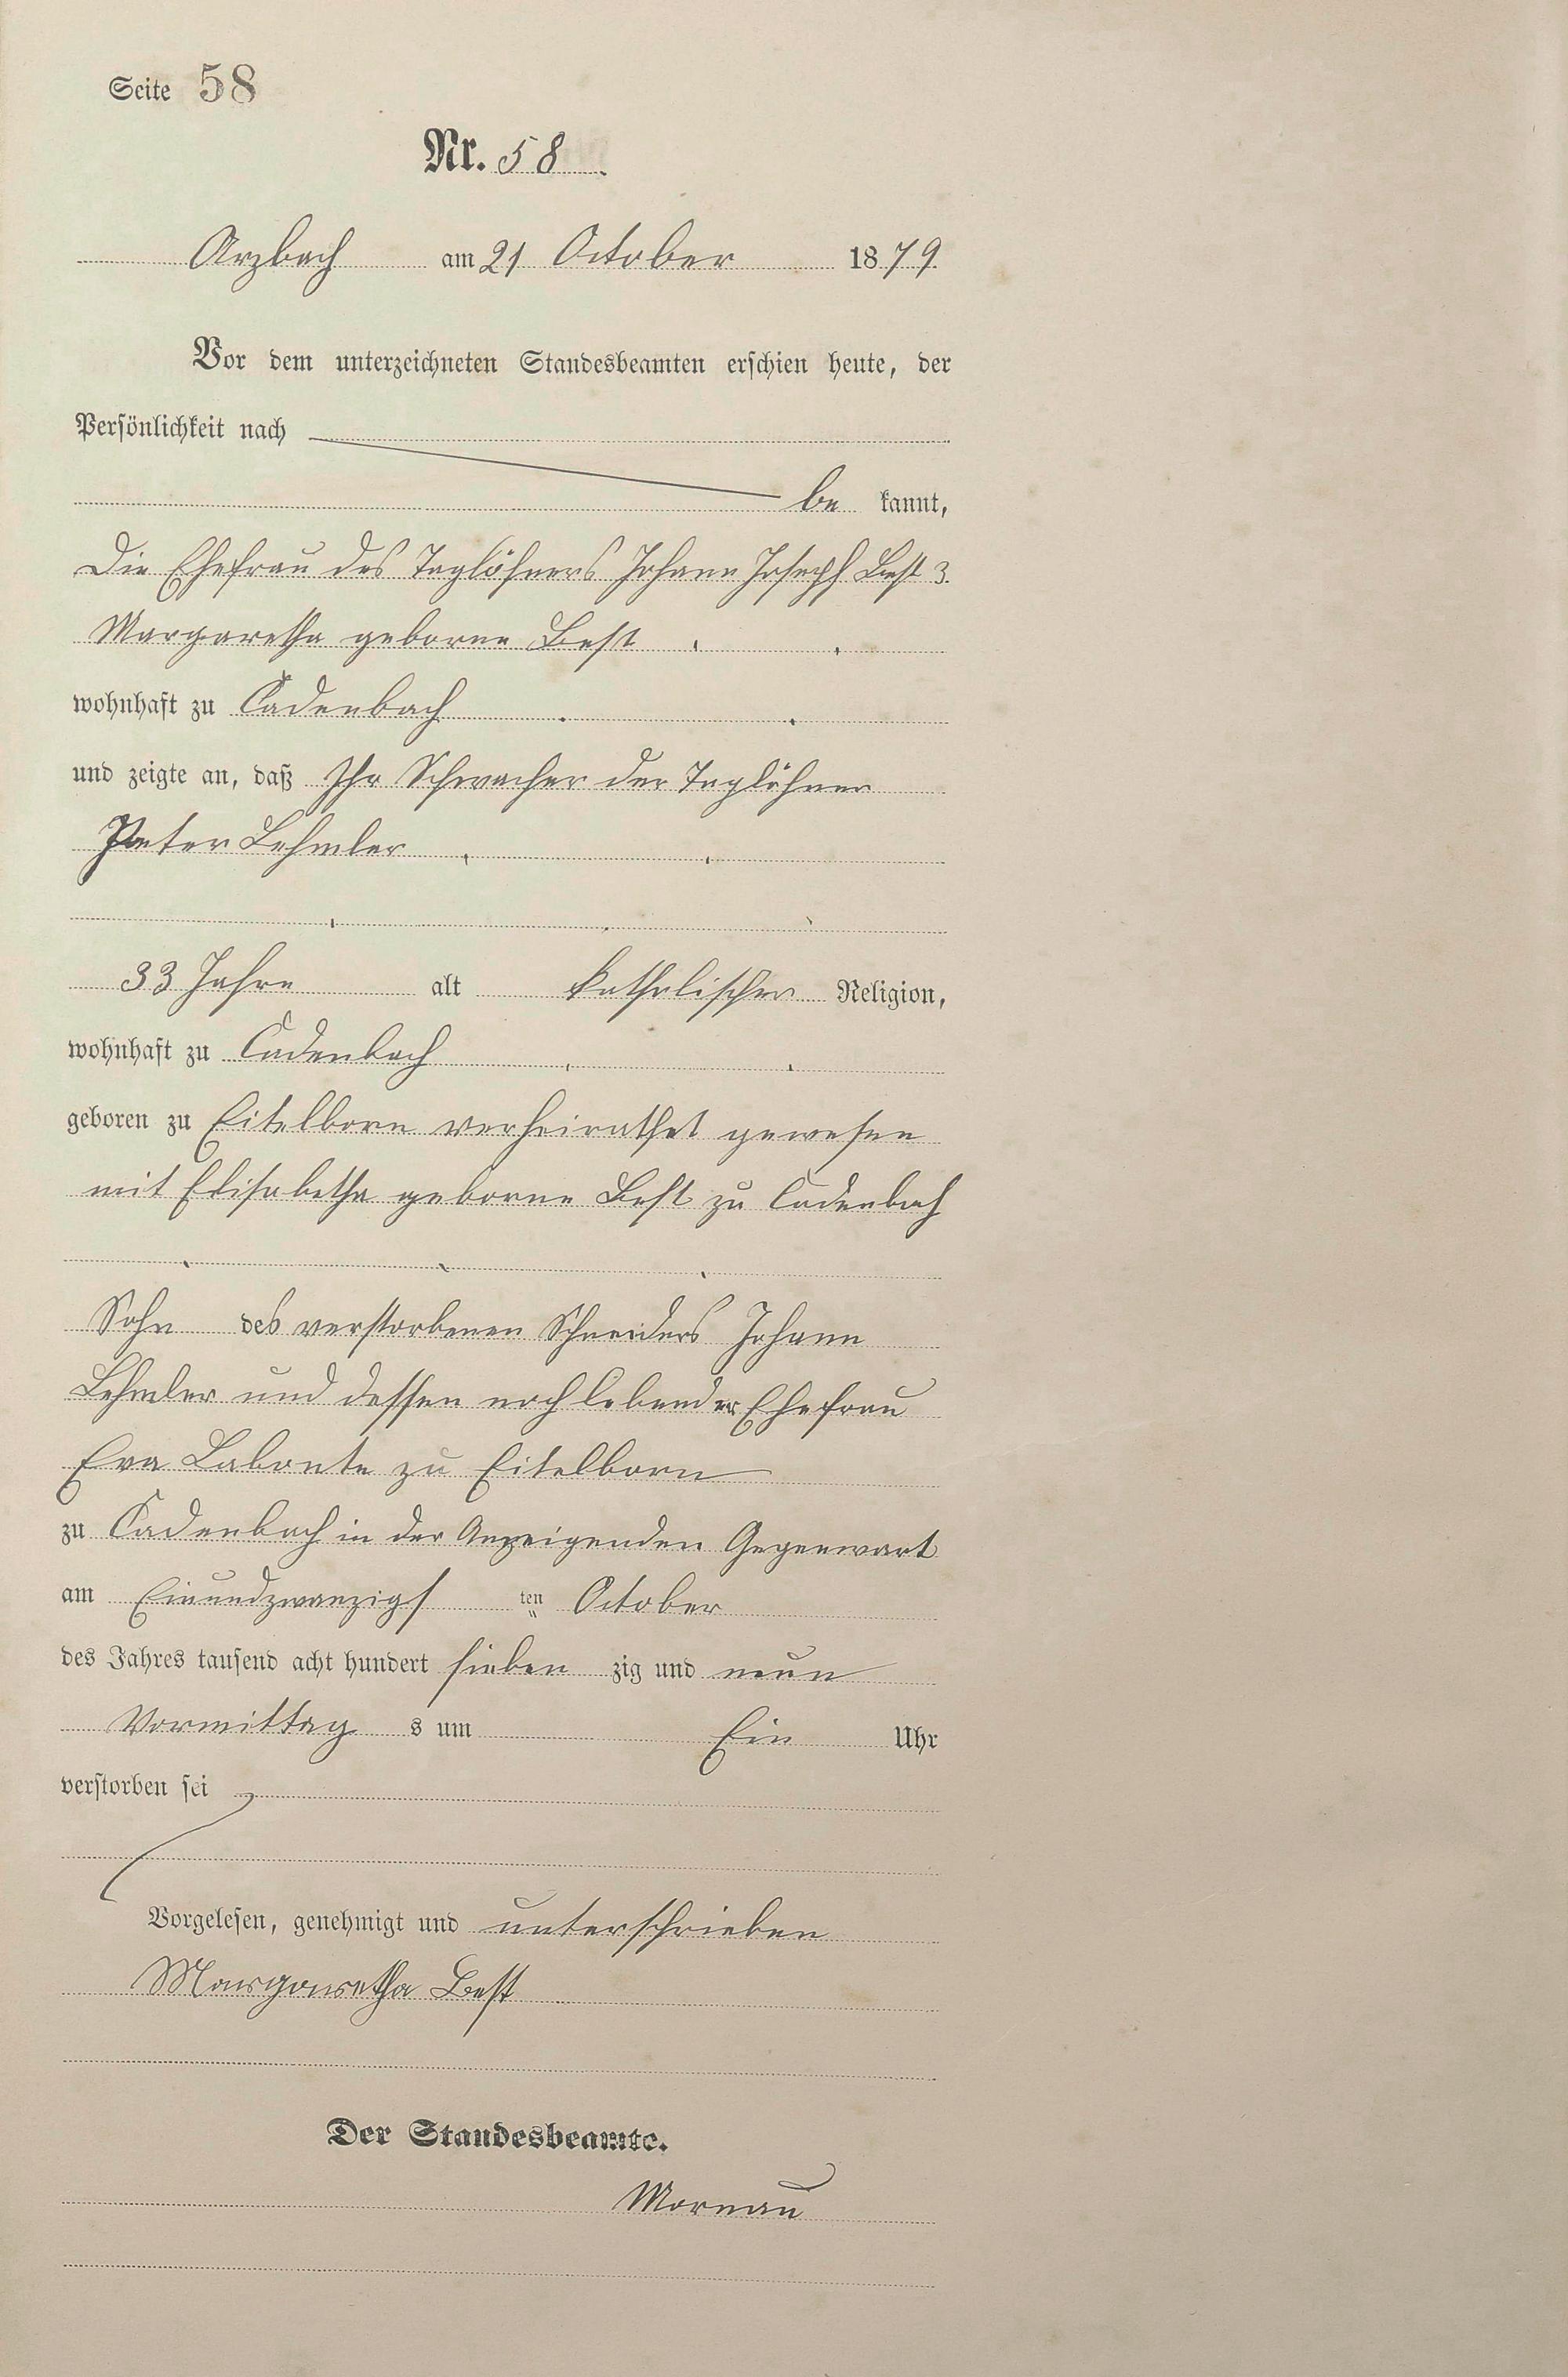 Seite 58
Nr. 58
Arzbach am 21 October 1879.
Vor dem unterzeichneten Standesbeamten erschien heute, der
Persönlichkeit nach
be kannt,
Die Ehefrau des Taglöhners Johann Joseph Best 3.
Margaretha geborne Best
wohnhaft zu Cadenbach
und zeigte an, daß Ihr Schwacher der Taglöhner
Peter Lehmler
33 Jahre alt katholischer Religion,
wohnhaft zu Cadenbach
geboren zu Eitelborn verheirathet gewesen
mit Elisabetha geborne Best zu Cadenbach
Sohn des verstorbenen Schneiders Johann
Lehmler und dessen noch lebender Ehefrau
Eva Labonte zu Eitelborn
zu Cadenbach in der Anzeigenden Gegenwart
am Einundzwanzigs ten October
des Jahres tausend acht hundert sieben zig und neun
Vormittag s um Ein Uhr
verstorben sei
Vorgelesen, genehmigt und unterschrieben
Margaretha Best
Der Standesbeamte.
Mornau